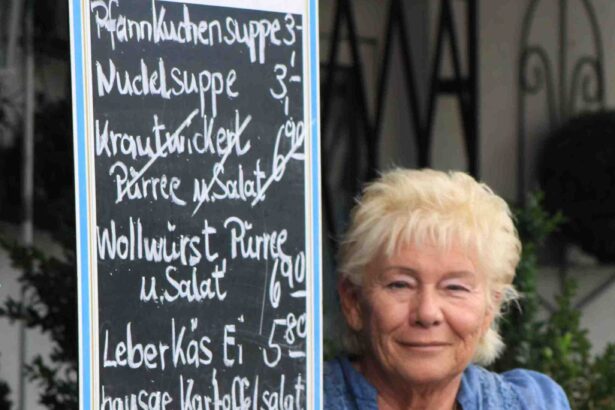 Pfannkuchensuppe 3,-
Nudelsuppe 3,-
Krautwickerl
Pürree u. Salat 6,90
Wollwürst, Pürree
u. Salat 6,90
Leberkäs Ei 5,80
hausge Kartoffelsalat